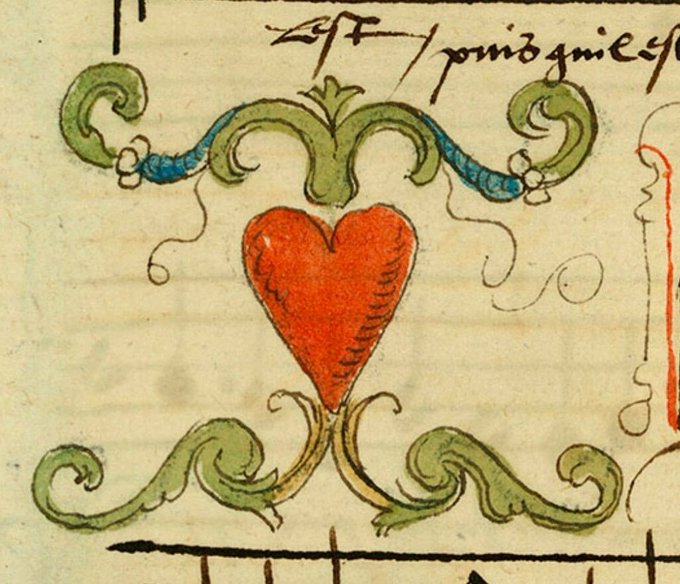 Lest / puis quil est